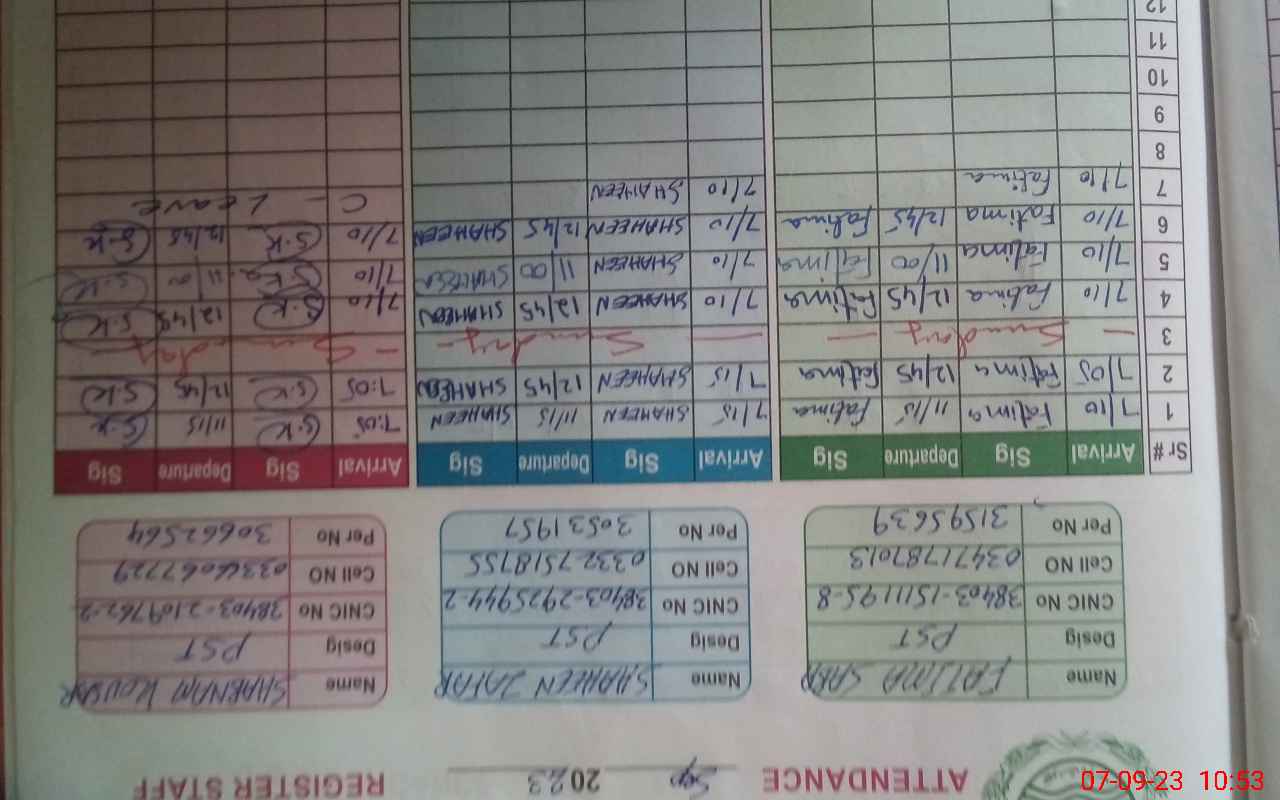 ATTENDANCE Sep 2023 REGISTER STAFF
Name FATIMA Name SHAHEEN ZAFAR Name SHABNAM KOUSAR
Desig PST Desig PST Desig PST
CNIC No 38403-1511195-8 CNIC No 38403-2925944-2 CNIC No 38403-2109762-2
Cell NO 03471787013 Cell NO 0332 7518755 Cell NO
Per No 31595639 Per No 30531957 Per No 30662564
Sr # Arrival Sig Departure Sig Arrival Sig Departure Sig Arrival Sig Departure Sig
1 7/10 Fatima 11/15 Fatima 7/15 SHAHEEN 11/15 SHAHEEN 7:05 S.K 11/15 S.K
2 7/05 Fatima 12/45 Fatima 7/15 SHAHEEN 12/45 SHAHEEN 7:05 S.K 12/45 S.K
3 — Sunday — — Sunday — — Sunday —
4 7/10 Fatima 12/45 Fatima 7/10 SHAHEEN 12/45 SHAHEEN 7/10 S.K 12/45 S.K
5 7/10 Fatima 11/00 Fatima 7/10 SHAHEEN 11/00 SHAHEEN 7/10 11/00 S.K
6 7/10 Fatima 12/45 Fatima 7/10 SHAHEEN 12/45 SHAHEEN 7/10 S.K 12/45 S.K
7 7/10 Fatima 7/10 SHAHEEN C – Leave
8
9
10
11
12
07-09-23 10:53